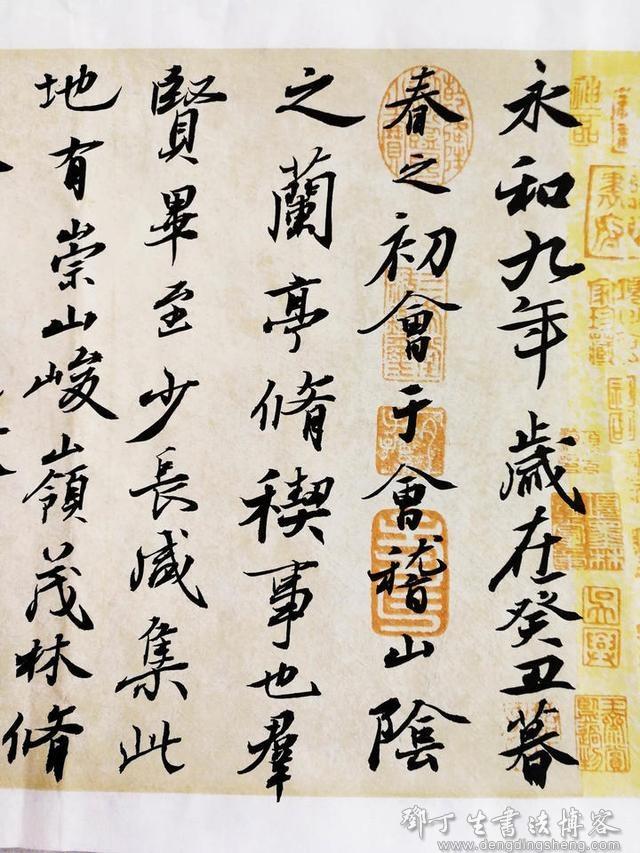 永和九年歲在癸丑暮
春之初會于會稽山陰
之蘭亭脩稧事也羣
賢畢至少長咸集此
地有崇山峻嶺茂林脩
鄧丁生书法博客
www.dengdingsheng.com